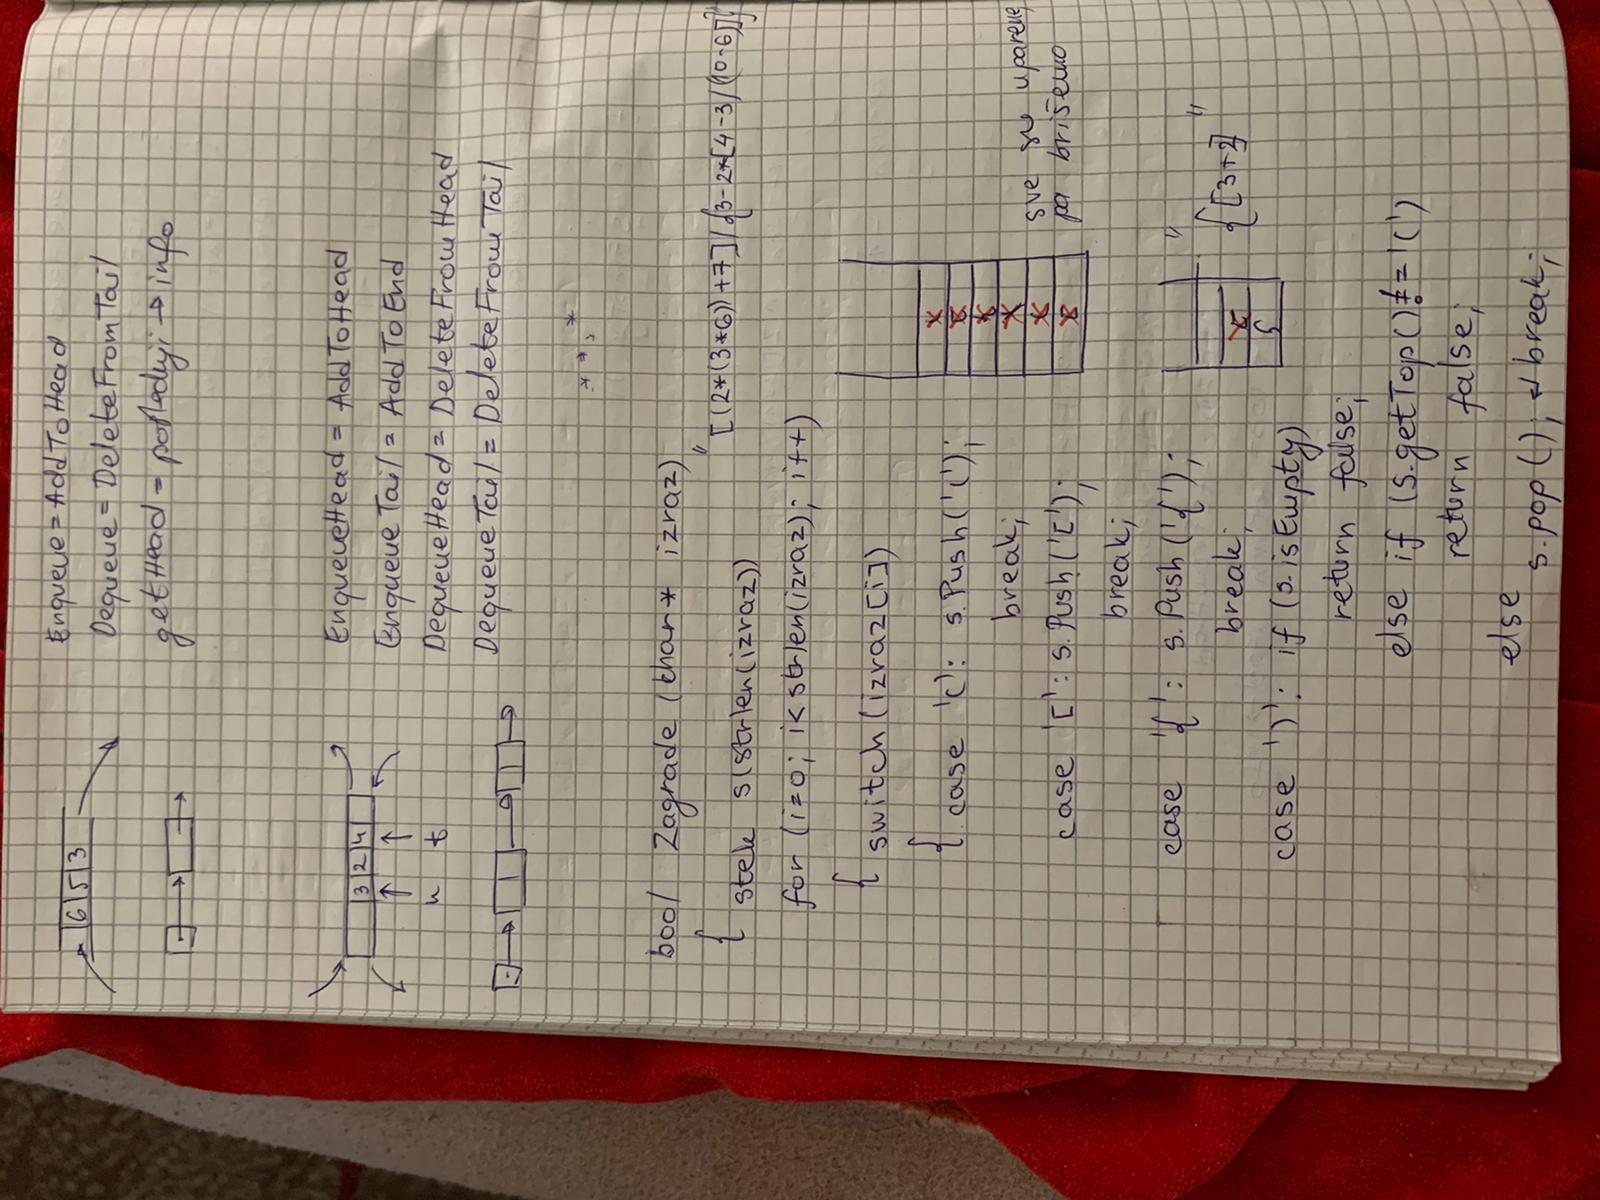 6 5 3
Enqueue = AddToHead
Dequeue = DeleteFromTail
getHead = poslednji → info
3 2 4
h t
EnqueueHead = AddToHead
EnqueueTail = AddToEnd
DequeueHead = DeleteFromHead
DequeueTail = DeleteFromTail
* * , *
bool Zagrade (char* izraz)
{ stek s(strlen(izraz))
"[(2*(3*6))+7]/{3-2*[4-3/(10-6)]}"
for (i=0; i<strlen(izraz); i++)
{ switch(izraz[i])
{ case '(': s.Push('(');
break;
case '[': s.Push('[');
break;
sve su uparene,
pa brišemo
case '{': s.Push('{');
break;
"{[3+2]"
{
case ')': if (s.isEmpty)
return false;
else if (s.getTop() != '(')
return false;
else
s.pop(); ↵ break;